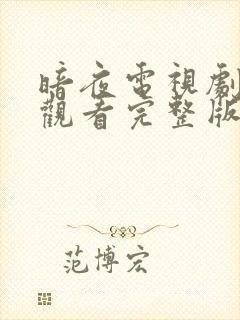 暗夜電視劇
觀看完整版
范博宏